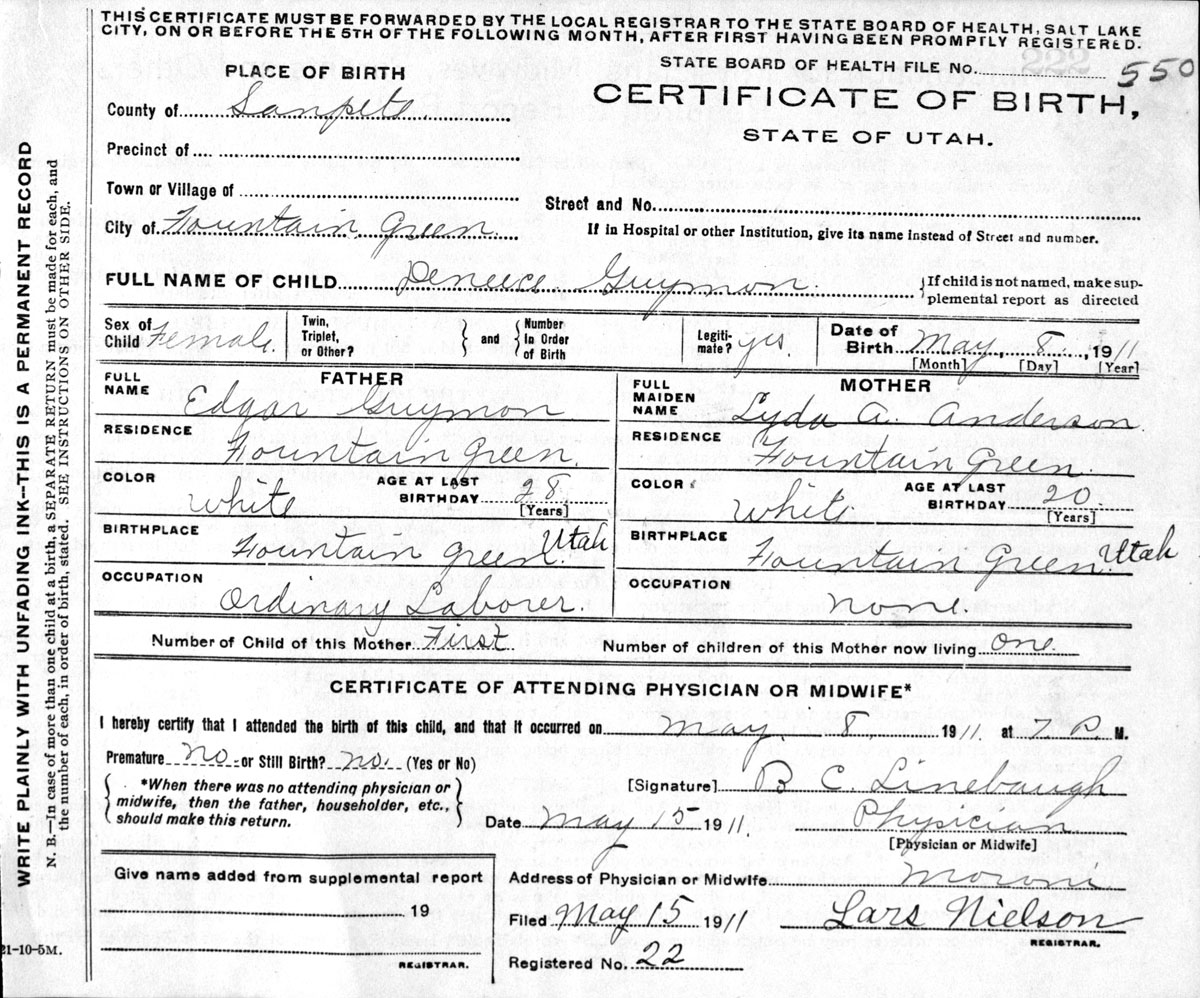 THIS CERTIFICATE MUST BE FORWARDED BY THE LOCAL REGISTRAR TO THE STATE BOARD OF HEALTH, SALT LAKE
CITY, ON OR BEFORE THE 5TH OF THE FOLLOWING MONTH, AFTER FIRST HAVING BEEN PROMPTLY REGISTERED.
PLACE OF BIRTH
STATE BOARD OF HEALTH FILE No. 550
County of Sanpete.
CERTIFICATE OF BIRTH,
STATE OF UTAH.
Precinct of
Town or Village of
Street and No.
City of Fountain Green.
If in Hospital or other Institution, give its name instead of Street and number.
FULL NAME OF CHILD Deneece Guymon. If child is not named, make sup-
plemental report as directed
Sex of Child Female. Twin, Triplet, or Other? and Number In Order of Birth Legiti-mate? yes. Date of Birth May, 8, 1911
[Month] [Day] [Year]
FATHER
FULL NAME Edgar Guymon
MOTHER
FULL MAIDEN NAME Lyda A. Anderson.
RESIDENCE Fountain Green.
RESIDENCE Fountain Green.
COLOR White AGE AT LAST BIRTHDAY 28 [Years]
COLOR White AGE AT LAST BIRTHDAY 20 [Years]
BIRTHPLACE Fountain green. Utah
BIRTHPLACE Fountain Green. Utah
OCCUPATION Ordinary Laborer.
OCCUPATION none.
Number of Child of this Mother First Number of children of this Mother now living one.
CERTIFICATE OF ATTENDING PHYSICIAN OR MIDWIFE*
I hereby certify that I attended the birth of this child, and that it occurred on May, 8, 1911. at 7 P M.
Premature no. or Still Birth? no. (Yes or No)
[Signature] B C. Linebaugh
*When there was no attending physician or
midwife, then the father, householder, etc.,
should make this return.
Date May 15 1911. Physician
[Physician or Midwife]
Give name added from supplemental report
19
REGISTRAR.
Address of Physician or Midwife Moroni
Filed May 15 1911 Lars Nielson
REGISTRAR.
Registered No. 22
WRITE PLAINLY WITH UNFADING INK--THIS IS A PERMANENT RECORD
N. B.—In case of more than one child at a birth, a SEPARATE RETURN must be made for each, and
the number of each, in order of birth, stated. SEE INSTRUCTIONS ON OTHER SIDE.
21-10-5M.